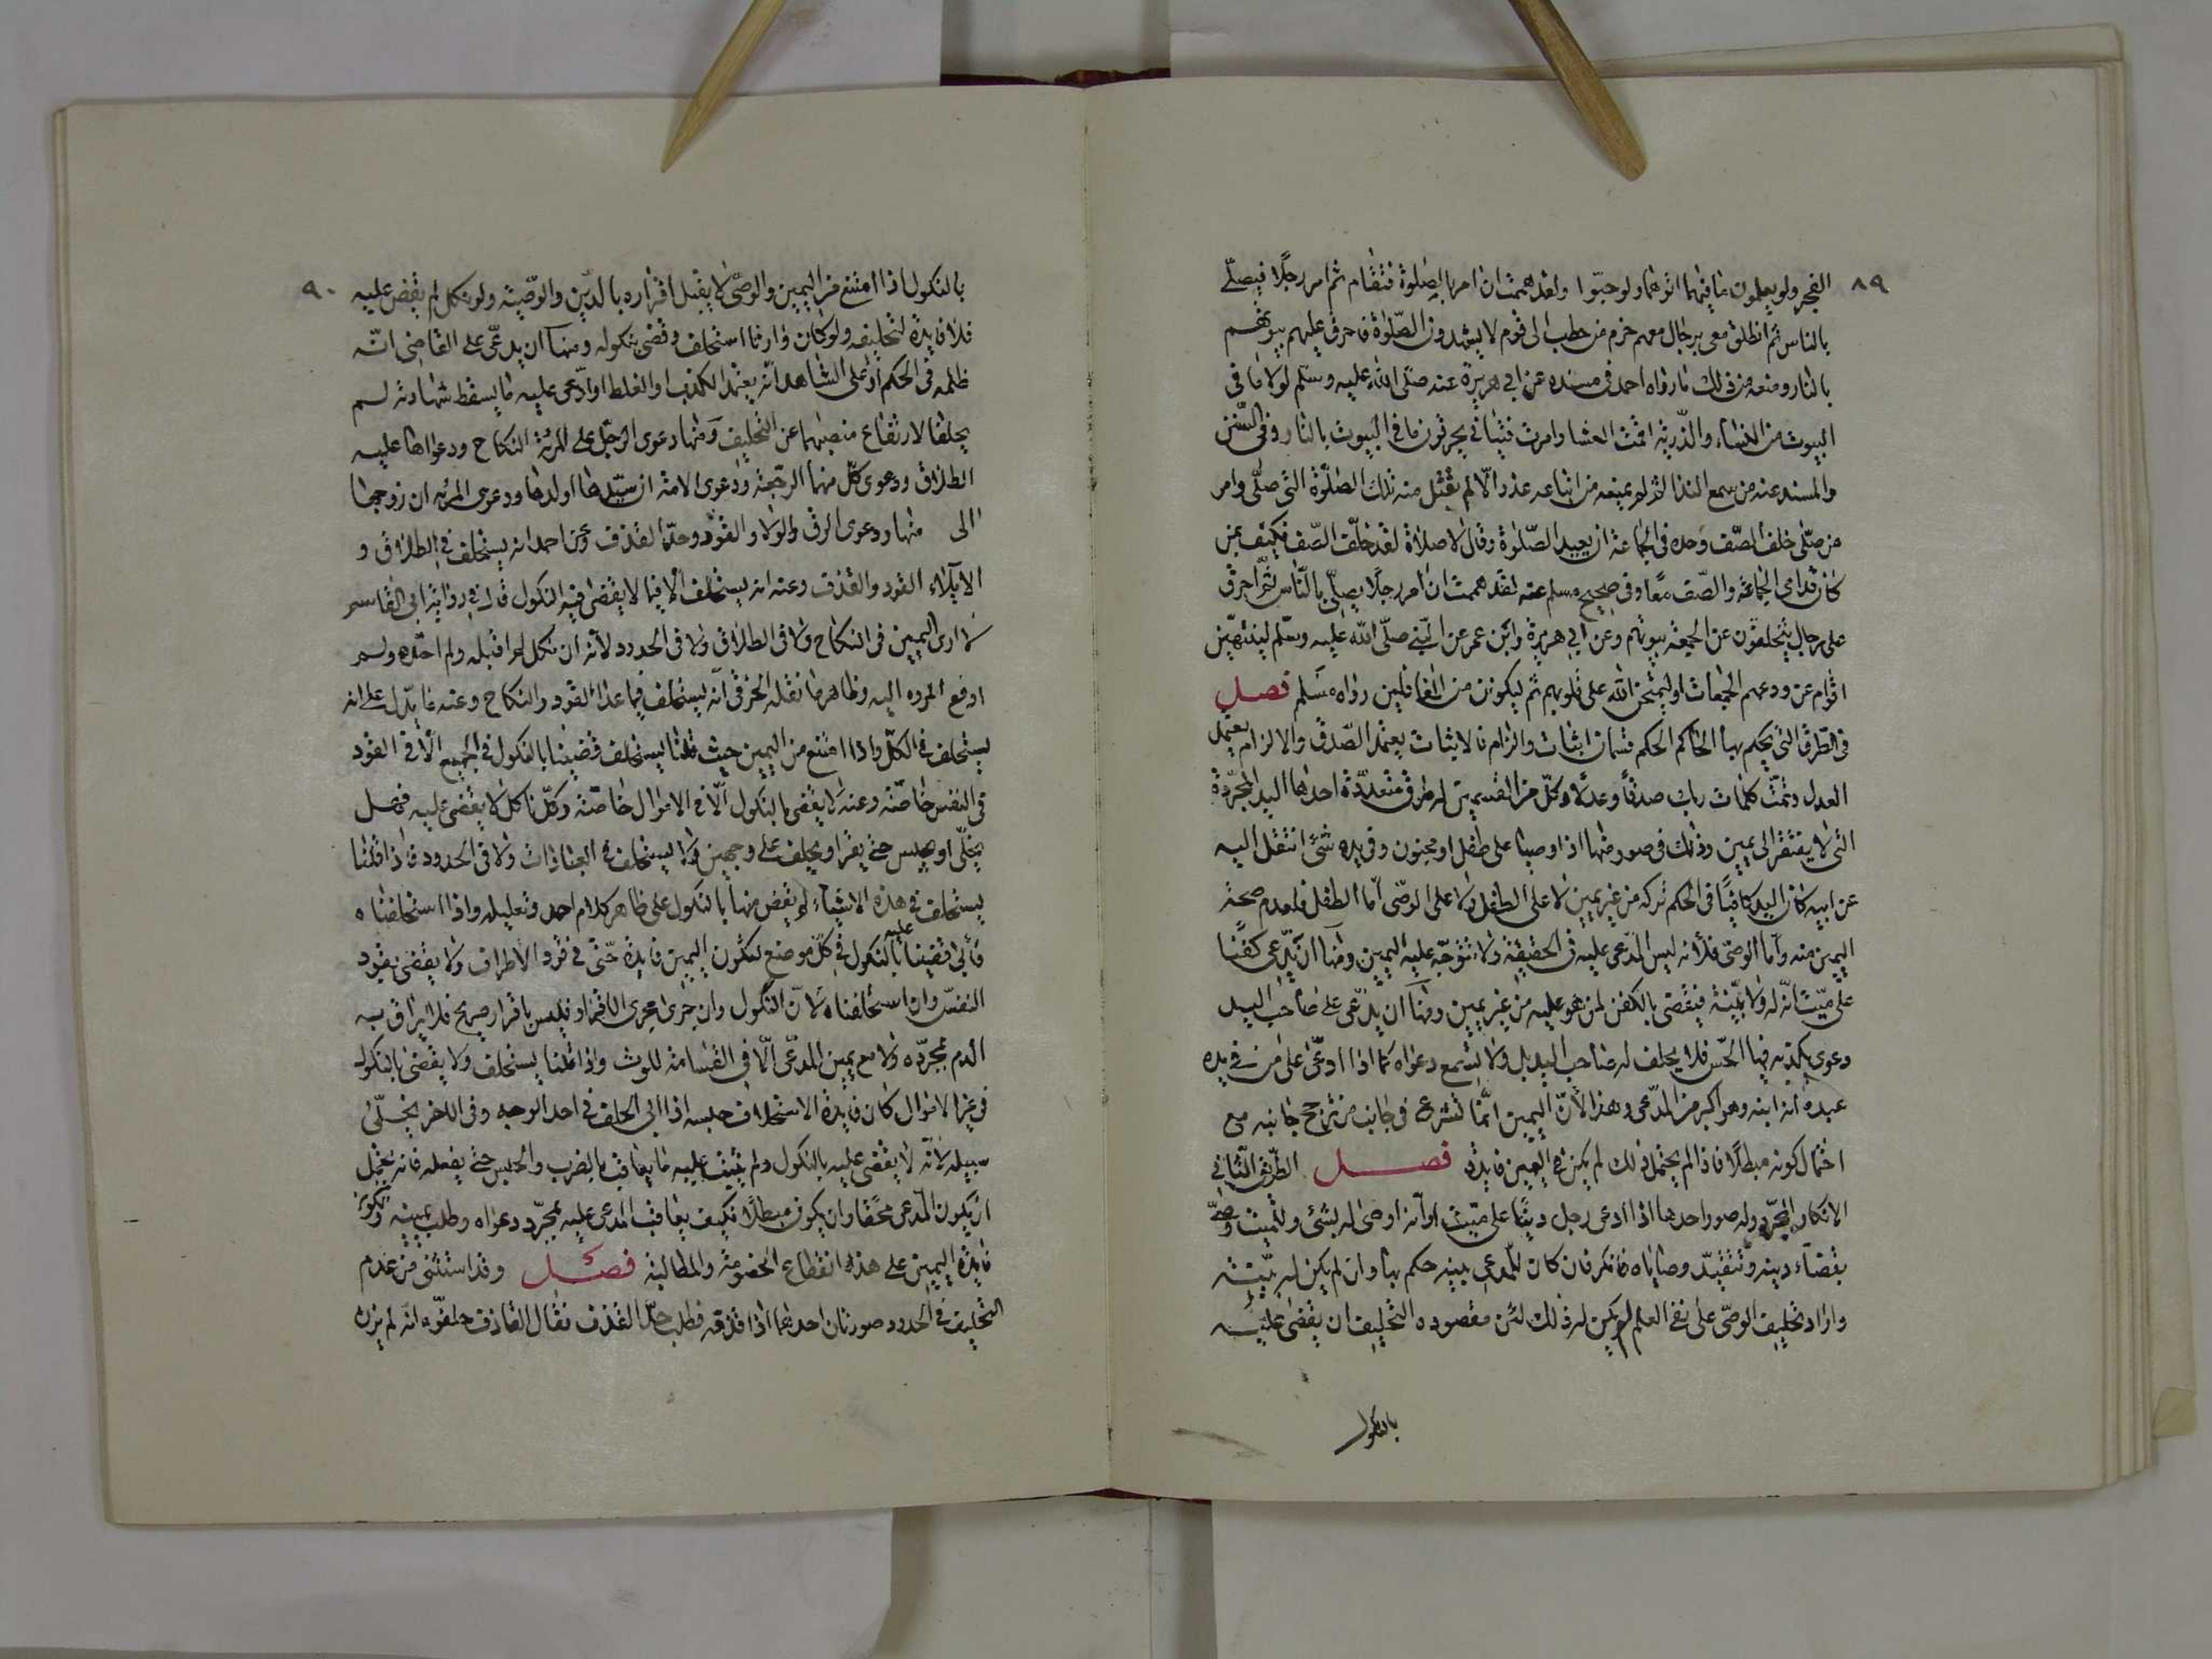 ٨٩
الفجر ولو يعلمون ما فيهما اتوهما ولو حبوا ولقد هممت ان امر بالصلوة فتقام ثم امر رجلا فيصلى
بالناس ثم انطلق معى برجال معهم حزم من حطب الى قوم لا يشهدون الصلوة فاحرق عليهم بيوتهم
بالنار ومنعه من ذلك ما رواه احمد فى مسنده عن ابى هريرة عنه صلى الله عليه وسلم لولا ما فى
البيوت من النساء والذرية اقمت العشا وامرت فتيانى يحرقون ما فى البيوت بالنار وفى السنن
والمسند عنه من سمع الندا ثم لم يمنعه من اتباعه عذر الا لم يقبل منه تلك الصلوة التى صلى وامر
من صلى خلف الصف وحده فى الجماعة ان يعيد الصلوة وقال لا صلاة لفذ خلف الصف فكيف بمن
كان قدامى الجماعة والصف معا وفى صحيح مسلم عنه لقد هممت ان امر رجلا يصلى بالناس ثم احرق
على رجال يتخلفون عن الجمعة بيوتهم وعن ابى هريرة وابن عمر عن النبى صلى الله عليه وسلم لينتهين
اقوام عن ودعهم الجمعات او ليختمن الله على قلوبهم ثم ليكونن من الغافلين رواه مسلم فصل
فى الطرق التى يحكم بها الحاكم الحكم قسمان اثبات والزام فالاثبات يعتمد الصدق والالزام يعتمد
العدل وتمت كلمات ربك صدقا وعدلا وكل من القسمين له طرق متعددة احداها اليد المجردة
التى لا يفتقر الى يمين وذلك فى صور منها اذا وصيا على طفل او مجنون وفى يده شئ انتقل اليه
عن ابيه كان اليد كافيا فى الحكم تركه من غير يمين لا على الطفل ولا على الوصى اما الطفل فلعدم صحة
اليمين منه واما الوصى فلانه ليس المدعى عليه فى الحقيقة ولا تتوجه عليه اليمين ومنها ان يدعى كفنا
على ميت انه له ولا بينة فيقضى بالكفن لمن هو عليه من غير يمين ومنها ان يدعى على صاحب اليد
دعوى يكذبه فيها الحس فلا يحلف له صاحب اليد بل ولا تسمع دعواه كما اذا ادعى على من فى يده
عبده انه ابنه وهو اكبر من المدعى وهذا لان اليمين انما تشرع فى جانب من ترجح جانبه مع
احتمال كونه مبطلا فاذا لم يحتمل ذلك لم يكن فى اليمين فايدة فصل الطريق الثانى
الانكار المجرد وله صور احدها اذا ادعى رجل دينا على ميت او انه اوصى له بشئ وللميت وصى
بقضاء دينه وتنفيذ وصاياه فانكر فان كان للمدعى بينه حكم بها وان لم يكن له بينة
واراد تحليف الوصى على نفى العلم لم يكن له ذلك لئن مقصوده التحليف ان يقضى عليه
بالنكول
٩٠
بالنكول اذا امتنع من اليمين والوصى لا يقبل اقراره بالدين والوصية ولو نكل لم يقض عليه
فلا فايدة لتحليفه ولو كان وارثا استحلف وقضى بنكوله ومنها ان يدعى على القاضى انه
ظلمه فى الحكم او على الشاهد انه يعتمد الكذب او الغلط او ادعى عليه ما يسقط شهادته لم
يحلفا لارتفاع منصبهما عن التحليف ومنها دعوى الرجل على المرئة النكاح ودعواها عليه
الطلاق ودعوى كل منهما الرجعة ودعوى الامة ان سيدها اولدها ودعوى المرئه ان زوجها
الى منها ودعوى الرق والولاء والقود وحد القذف وعن احمد انه يستحلف فى الطلاق و
الايلاء القود والقذف وعنه انه يستحلف الا فيما لا يقضى فيه النكول قال فى رواية ابى القاسم
لا ارى اليمين فى النكاح ولا فى الطلاق ولا فى الحدود لانه ان نكل لم اقتله ولم احده ولم
ادفع المرده اليه وظاهر ما نقله الخرقى انه يستحلف فيما عدا القود والنكاح وعنه ما يدل على انه
يستحلف فى الكل واذا امتنع من اليمين حيث قلنا يستحلف قضينا بالنكول فى الجميع الا فى القود
فى النفس خاصة وعنه لا يقضى بالنكول الا فى الاموال خاصة وكل ناكل لا يقضى عليه فهل
يخلى او يحبس حتى يقر او يحلف على وجهين ولا يستحلف فى العبادات ولا فى الحدود فاذا قلنا
يستحلف فى هذه الاشياء لم يقض منها بالنكول على ظاهر كلام احمد وتعليله واذا استحلفناه
فأبى قضينا عليه بالنكول فى كل موضع لتكون اليمين فايدة حتى فى قود الاطراف ولا يقضى بقود
النفس وان استحلفناه لان النكول وان جرى مجرى الاقرار فليس باقرار صريح فلا يراق به
الدم بمجرده ولا مع يمين المدعى الا فى القسامة للوث واذا قلنا يستحلف ولا يقضى بالنكول
فى غير الاموال كان فايدة الاستحلاف حبسه اذا ابى الحلف فى احد الوجه وفى الاخر يخلى
سبيله لانه لا يقضى عليه بالنكول ولم يثبت عليه ما يعاقب بالضرب والحبس حتى يفعله فانه يحتمل
ان يكون المدعى محقا وان يكون مبطلا فكيف يعاقب المدعى عليه بمجرد دعواه وطلب يمينه وتكون
فايدة اليمين على هذه انقطاع الخصومة والمطالبة فصل وقد استثنى من عدم
التحليف فى الحدود صورتان احدهما اذا قذفه فطلب حد القذف فقال القاذف حلفوه انه لم يزن